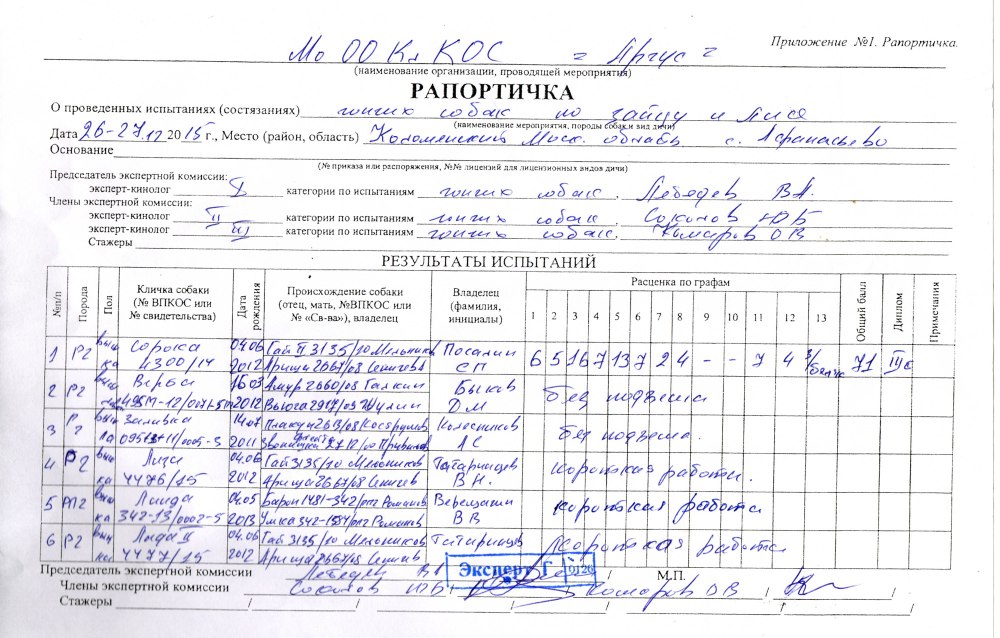 Приложение №1. Рапортичка.
Мо ОО Кл КОС "Аргус"
(наименование организации, проводящей мероприятия)
РАПОРТИЧКА
О проведенных испытаниях (состязаниях) гончих собак по зайцу и лисе
(наименование мероприятия, породы собак и вид дичи)
Дата 26-27.12 2015 г., Место (район, область) Коломенский Моск. область с. Афанасьево
Основание
(№ приказа или распоряжения, №№ лицензий для лицензионных видов дичи)
Председатель экспертной комиссии:
эксперт-кинолог I категории по испытаниям гончих собак, Лебедев В.А.
Члены экспертной комиссии:
эксперт-кинолог II категории по испытаниям гончих собак, Соколов Ю В
эксперт-кинолог III категории по испытаниям гончих собак, Комаров О В
Стажеры
РЕЗУЛЬТАТЫ ИСПЫТАНИЙ
№п/п Порода Пол Кличка собаки (№ ВПКОС или № свидетельства) Дата рождения Происхождение собаки (отец, мать, №ВПКОС или № «Св-ва»), владелец Владелец (фамилия, инициалы) Расценка по графам Общий балл Диплом Примечания
1 2 3 4 5 6 7 8 9 10 11 12 13
1 РГ вы Сорока 04.06 Гай II 3135/10 Мельников Посалин 6 5 16 7 13 7 2 4 - - 7 4 71 IIIс
ка 4300/14 2012 Ариша 2667/08 Сенигов СП
2 РГ Верба 16.03 Амур 2660/08 Галкин Быков без подъема
2012 Вьюга 2917/09 ДМ
3 РГ вы Заливка 14.07 Плакун 2613/08 Кострулев Колесников без подъема.
2011 ЛС
4 РГ вы Лизи 04.06 Гай 3135/10 Мельников Татаринцев короткая работа.
ка 4476/15 2012 Ариша 2667/08 Сенигов В Н.
5 вы Линда 04.05 Барон 1481-342/ Романов Верещагин короткая работа
ка 342-13/0002-5 2013 Умка Романов ВВ
6 РГ вы Лада II 04.06 Гай 3135/10 Мельников Татаринцев Короткая работа
ка 4477/15 2012 Ариша 2667/08 Сенигов
Председатель экспертной комиссии Лебедев ВА / М.П.
Эксперт Г 0120
Члены экспертной комиссии Соколов Ю В. / Комаров О В /
Стажеры / / /